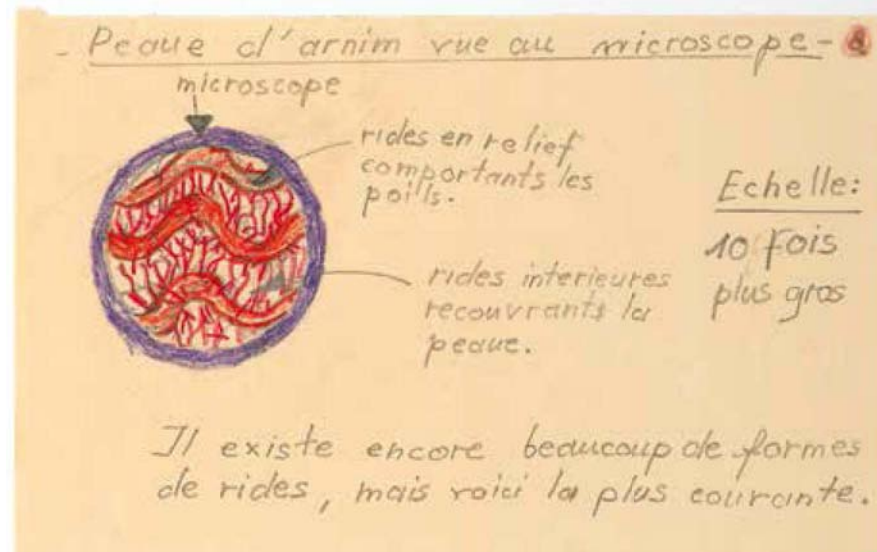 - Peaue d'arnim vue au microscope -
microscope
rides en relief
comportants les
poils.
Echelle:
10 fois
plus gros
rides interieures
recouvrants la
peaue.
Il existe encore beaucoup de formes
de rides, mais voici la plus courante.